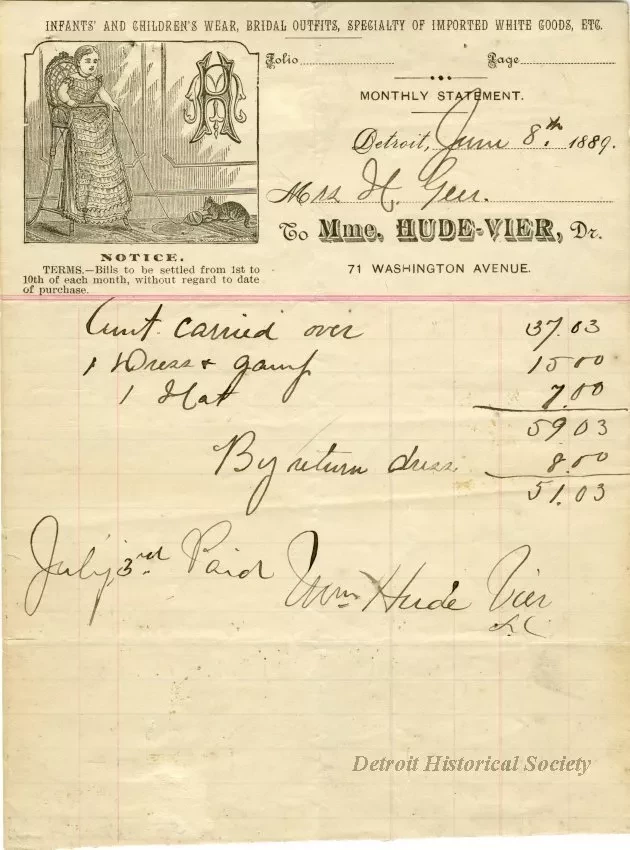 INFANTS' AND CHILDREN'S WEAR, BRIDAL OUTFITS, SPECIALTY OF IMPORTED WHITE GOODS, ETC.
Folio
Page
MONTHLY STATEMENT.
Detroit, June 8th 1889.
Mrs H. Geer.
To Mme. HUDE-VIER, Dr.
71 WASHINGTON AVENUE.
H
NOTICE.
TERMS.—Bills to be settled from 1st to
10th of each month, without regard to date
of purchase.
Amt. carried over 37.03
1 Dress & gamp 15 00
1 Hat 7.00
59 03
By return dress 8.00
51.03
July 3rd Paid Mme Hude Vier